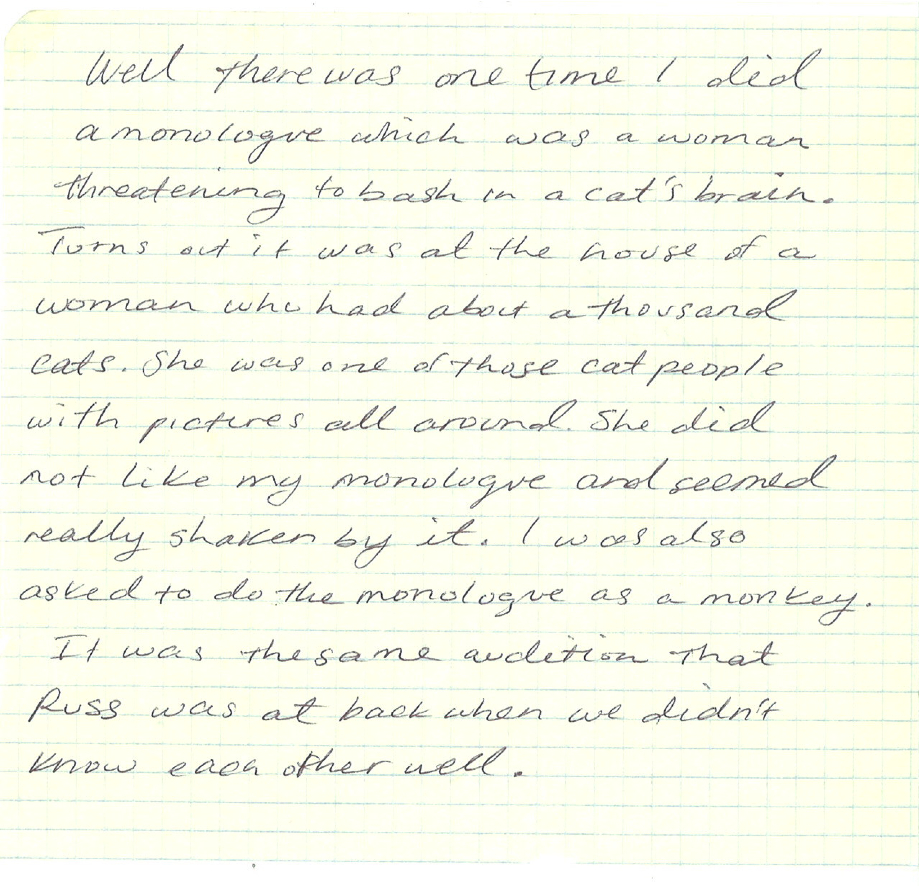 Well there was one time I did
a monologue which was a woman
threatening to bash in a cat's brain.
Turns out it was at the house of a
woman who had about a thousand
cats. She was one of those cat people
with pictures all around. She did
not like my monologue and seemed
really shaken by it. I was also
asked to do the monologue as a monkey.
It was the same audition that
Russ was at back when we didn't
know each other well.